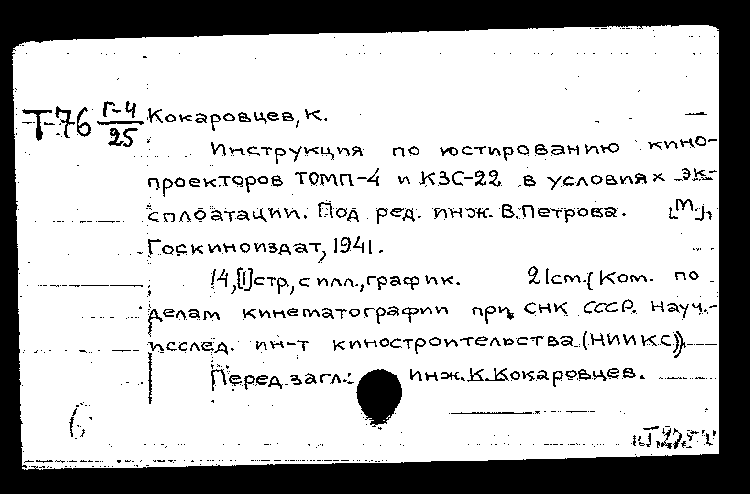 Т-76 Г-4/25 Кокаровцев, К.
Инструкция по юстированию кино-
проекторов ТОМП-4 и КЗС-22 в условиях эк-
сплоатации. Под ред. инж. В.Петрова. [М.],
Госкиноиздат, 1941.
14,[1]стр., с илл., график. 21см. (Ком. по
делам кинематографии при СНК СССР. Науч.-
исслед. ин-т киностроительства (НИИКС)).
Перед загл.: инж. К. Кокаровцев.
6